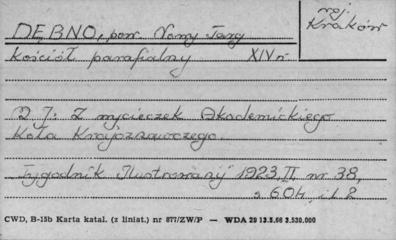 woj.
Kraków
DĘBNO, pow. Nowy Targ
kościół parafialny XIV w.
Z wycieczek Akademickiego
Koła Krajoznawczego.
Tygodnik Ilustrowany 1923, II, nr 38,
s. 604, il. 2
CWD, B-15b Karta katal. (z liniat.) nr 877/ZW/P — WDA 29 13.5.66 3.530.000